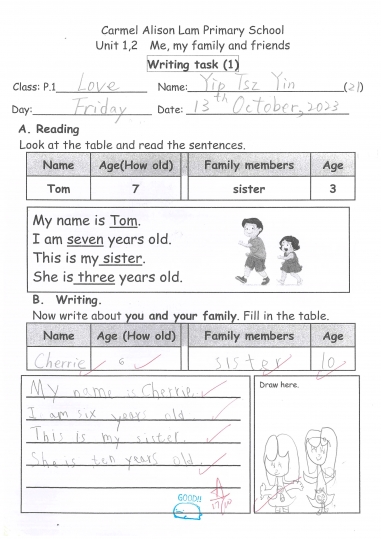 Carmel Alison Lam Primary School
Unit 1,2 Me, my family and friends
Writing task (1)
Class: P.1 Love Name: Yip Tsz Yin (21)
Day: Friday Date: 13th October, 2023
A. Reading
Look at the table and read the sentences.
Name Age(How old) Family members Age
Tom 7 sister 3
My name is Tom.
I am seven years old.
This is my sister.
She is three years old.
B. Writing.
Now write about you and your family. Fill in the table.
Name Age (How old) Family members Age
Cherrie 6 sister 10
My name is Cherrie.
I am six years old.
This is my sister.
She is ten years old.
Draw here.
GOOD!!
A